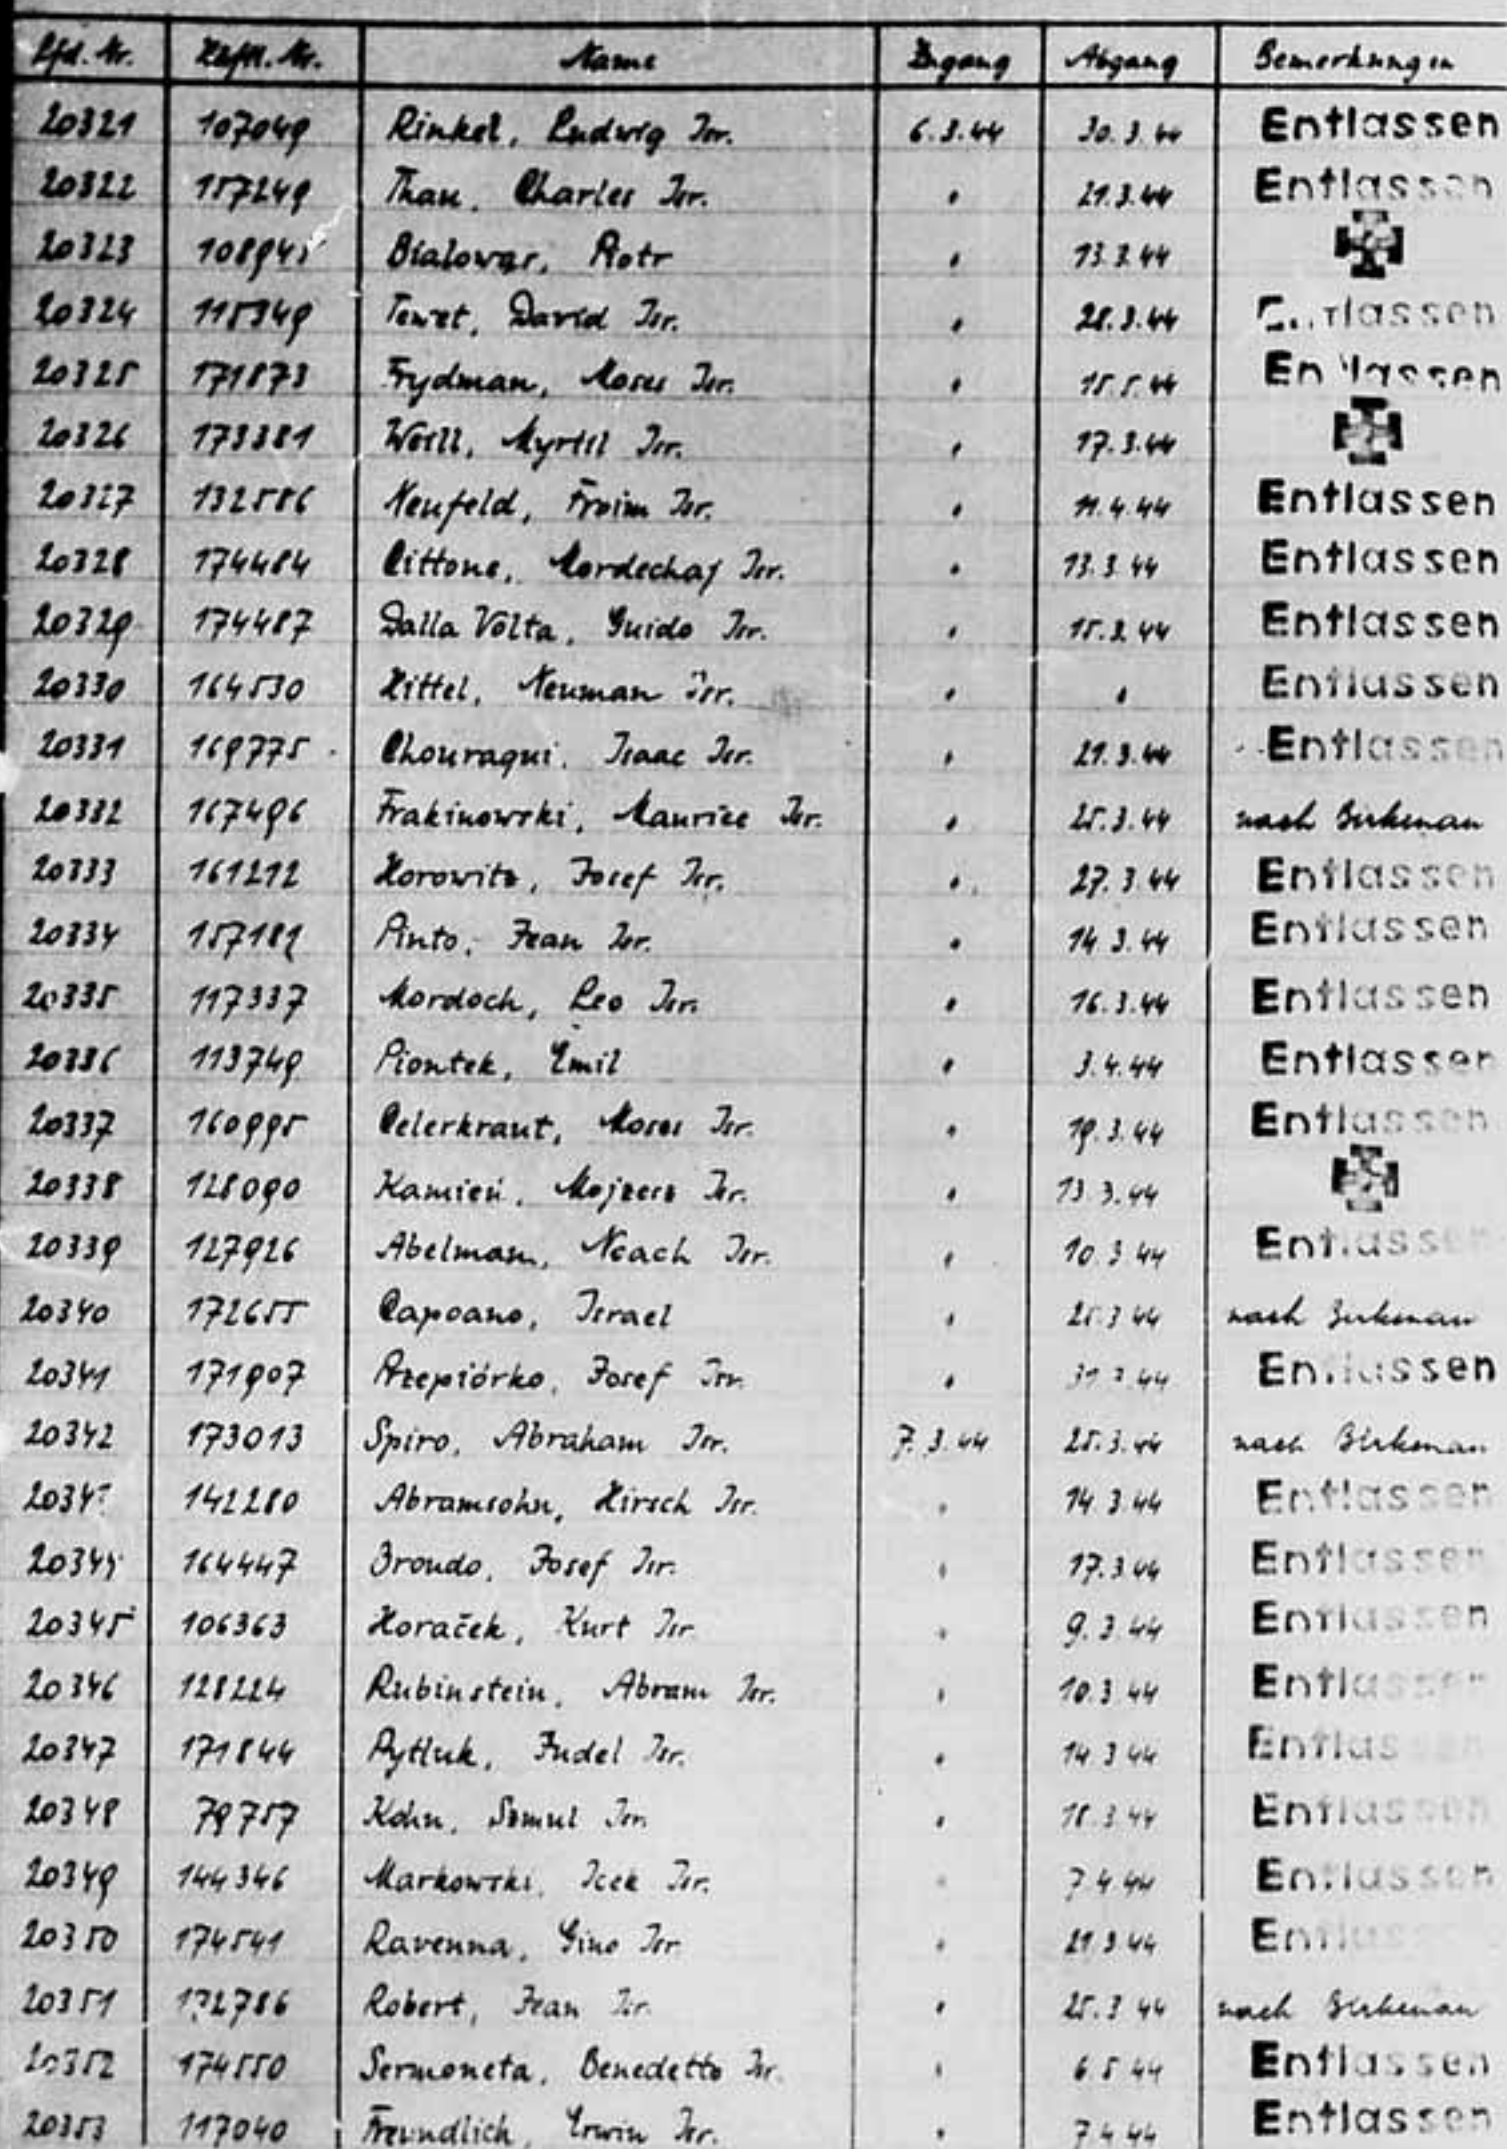 Lfd. Nr. Häftl. Nr. Name Zugang Abgang Bemerkungen
20321 107049 Rinkel, Ludwig Isr. 6.3.44 30.3.44 Entlassen
20322 157249 Than, Charles Isr. " 21.3.44 Entlassen
20323 Piotr " 13.3.44
20324 115349 David Isr. " 28.3.44 Entlassen
20325 171873 Frydman, Moses Isr. " 15.5.44 Entlassen
20326 173381 Weill, Myrtil Isr. " 17.3.44
20327 132586 Neufeld, Froim Isr. " 11.4.44 Entlassen
20328 174484 Cittone, Mordechaj Isr. " 13.3.44 Entlassen
20329 174487 Dalla Volta, Guido Isr. " 15.3.44 Entlassen
20330 164530 Kittel, Neuman Isr. " " Entlassen
20331 169775 Chouraqui, Isaac Isr. " 21.3.44 Entlassen
20332 167496 Frakinowski, Maurice Isr. " 25.3.44 nach Birkenau
20333 161212 Horowitz, Josef Isr. " 27.3.44 Entlassen
20334 Pinto, Jean Isr. " 14.3.44 Entlassen
20335 117337 Mordoch, Leo Isr. " 16.3.44 Entlassen
20336 113749 Piontek, Emil " 3.4.44 Entlassen
20337 160995 Celerkraut, Moses Isr. " 19.3.44 Entlassen
20338 128090 Kamień, Mojzesz Isr. " 13.3.44
20339 127926 Abelman, Noach Isr. " 10.3.44 Entlassen
20340 172655 Capoano, Israel " 25.3.44 nach Birkenau
20341 171907 Przepiórko, Josef Isr. " Entlassen
20342 173013 Spiro, Abraham Isr. 7.3.44 25.3.44 nach Birkenau
142280 Abramsohn, Hirsch Isr. " 14.3.44 Entlassen
20344 164447 Broudo, Josef Isr. " 17.3.44 Entlassen
20345 106363 Horaček, Kurt Isr. " 9.3.44 Entlassen
20346 128224 Rubinstein, Abram Isr. " 10.3.44 Entlassen
20347 171844 Pytluk, Judel Isr. " 14.3.44 Entlassen
20348 79757 Kohn, Samuel Isr. " 18.3.44 Entlassen
20349 144346 Markowski, Icek Isr. " 7.4.44 Entlassen
20350 174541 Ravenna, Gino Isr. " 21.3.44 Entlassen
20351 172786 Robert, Jean Isr. " 25.3.44 nach Birkenau
20352 174550 Sermoneta, Benedetto Isr. " 6.5.44 Entlassen
20353 117040 Freundlich, Erwin Isr. " 7.4.44 Entlassen